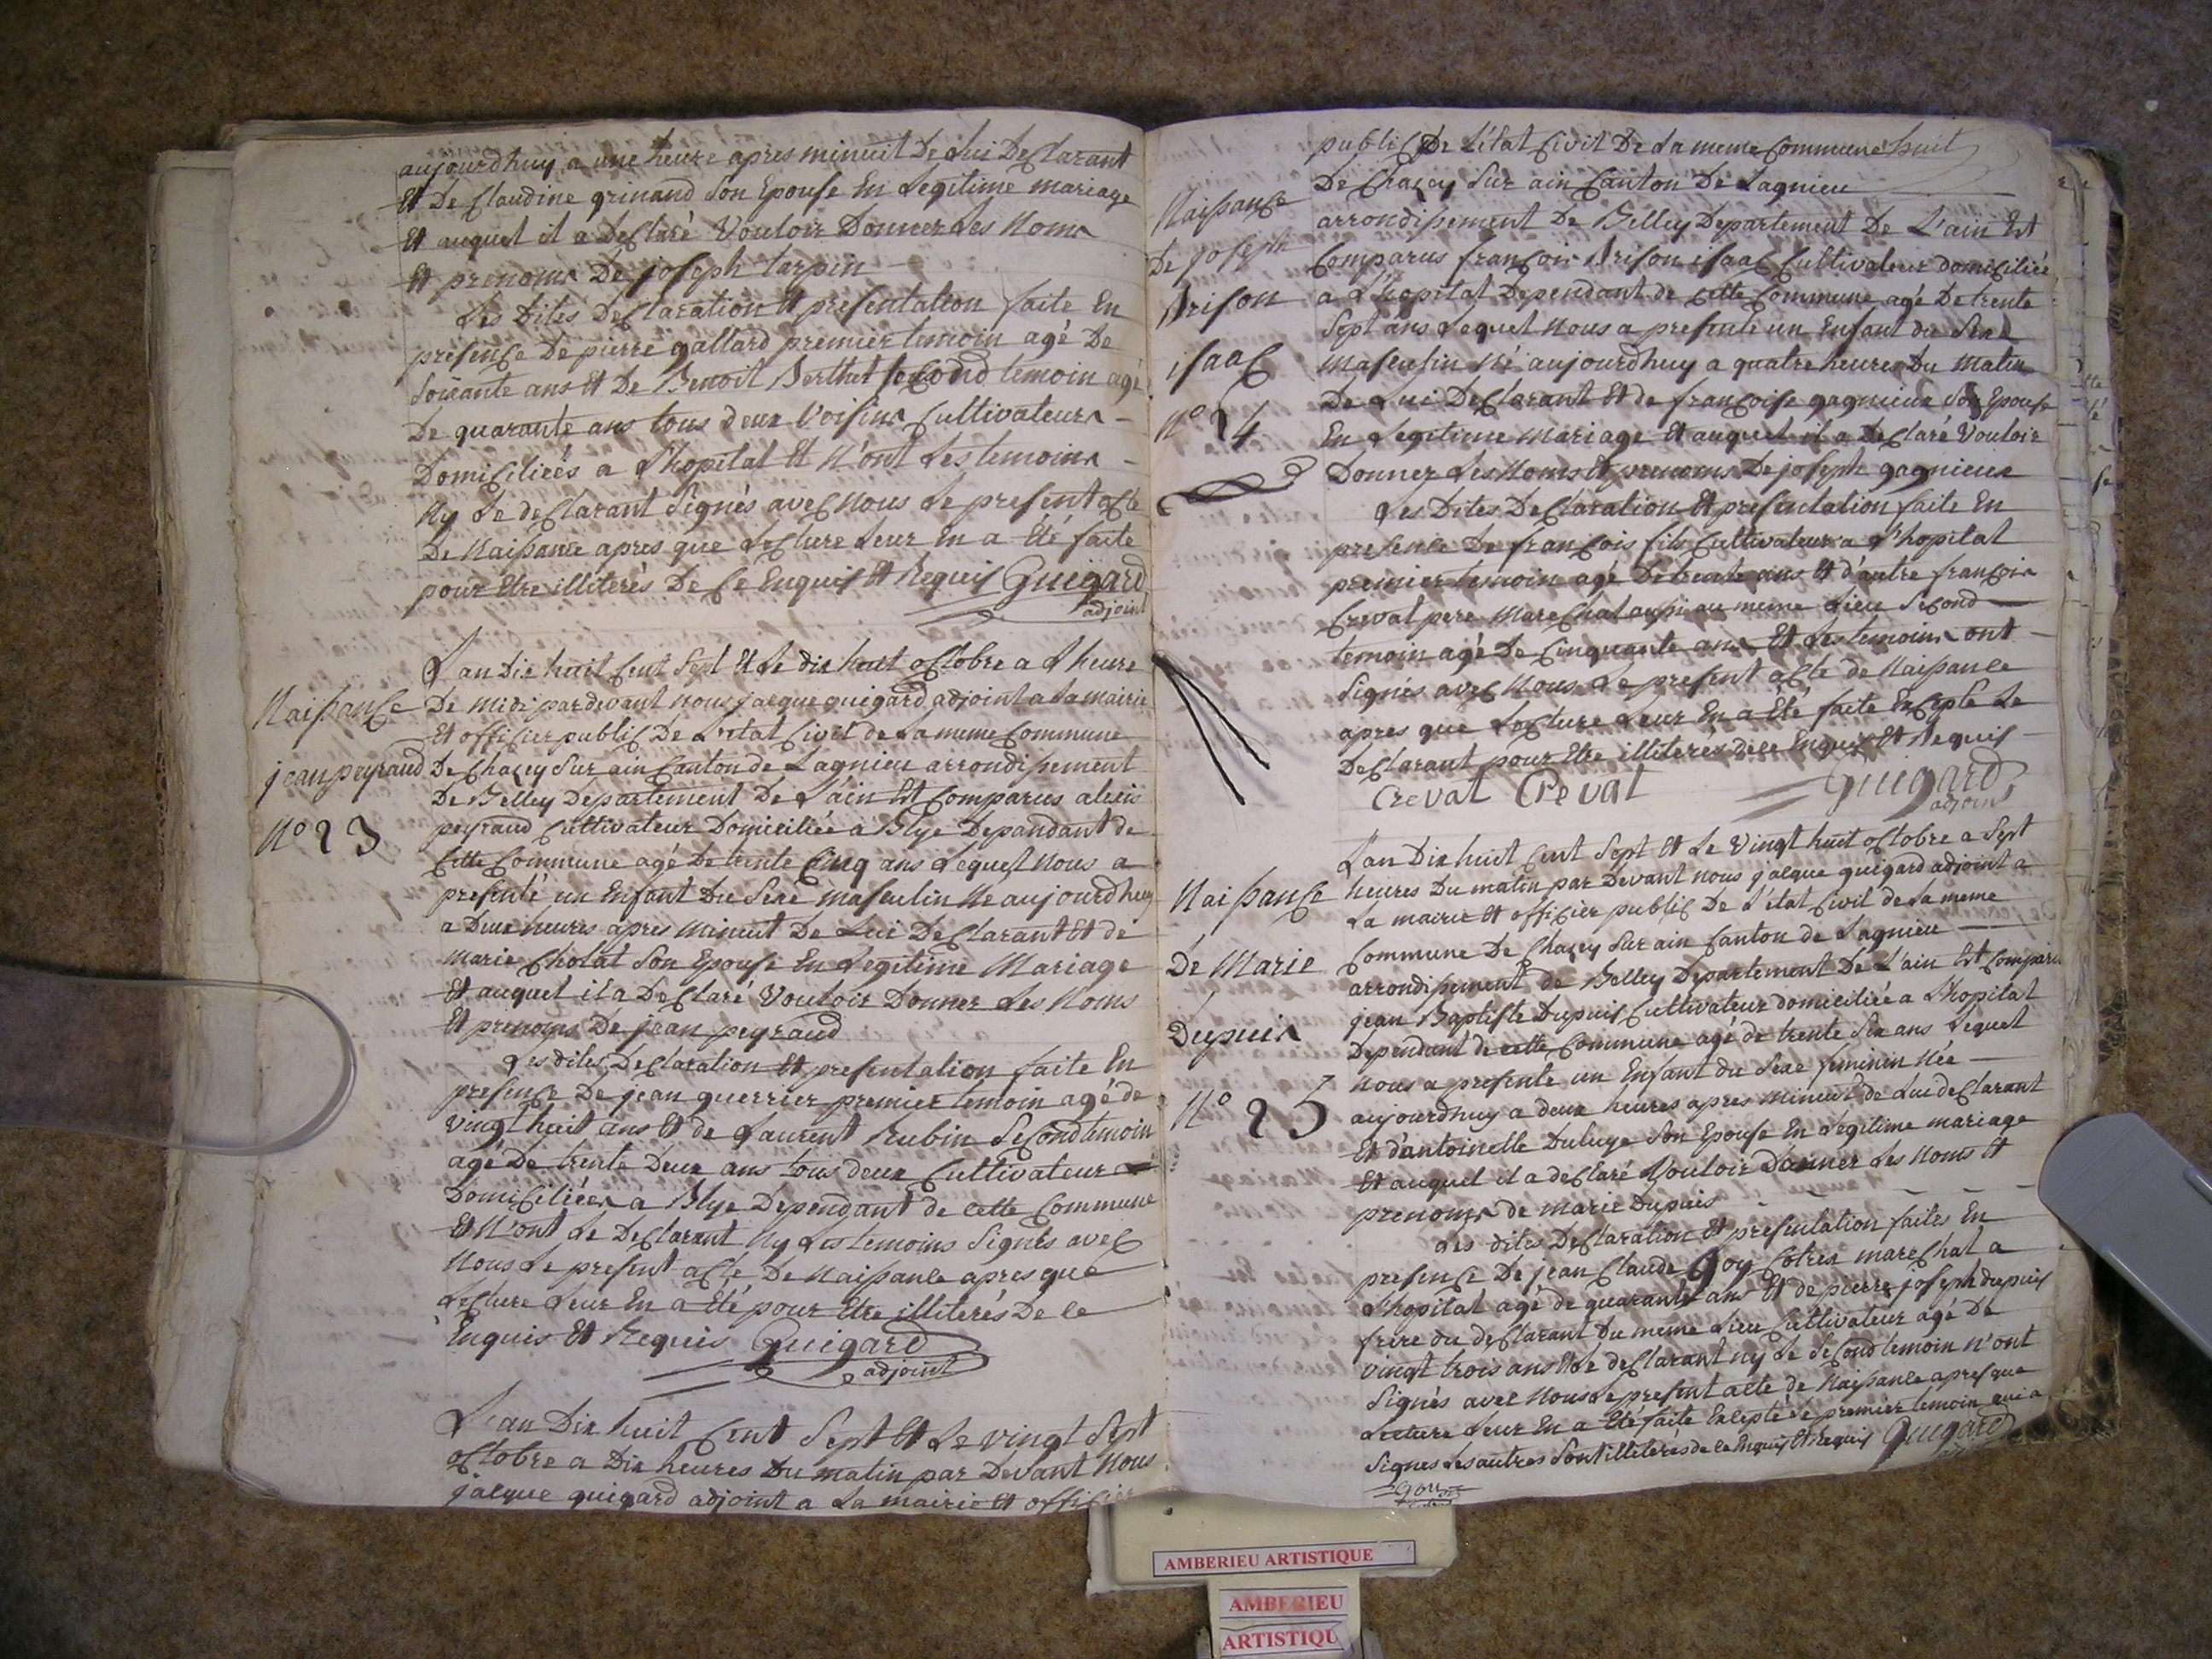 aujourdhuy a une heure apres minuit De Lui Declarant
Et De Claudine grinand Son Epouse En Legitime mariage
Et auquel il a Declaré Vouloir Donner Les Noms
Et prenoms De joseph tarpin
Les Dites Declaration Et presentation faite En
presence De pierre gallard premier temoin agé De
Soixante ans Et De Benoit Berthet second temoin agé
De quarante ans tous deux Voisins Cultivateurs
Domiciliées a L'hopital Et N'ont Les temoins
Ny Le declarant Signés avec Nous Le present acte
De Naissance apres que Lecture Leur En a Eté faite
pour Etre illiterés De Ce Enquis Et Requis Guigard
adjoint
L'an Dix huit Cent Sept Et Le dix huit octobre a L'heure
De midi pardevant nous jacque guigard adjoint a La mairie
Et officier public De L'etat Civil de La meme Commune
De Chazey Sur ain Canton de Lagnieu arrondissement
De Belley Departement De L'ain Est Comparus alexis
peyraud Cultivateur Domiciliée a Blye Dependant de
Cette Commune agé De trente Cinq ans Lequel Nous a
presenté un Enfant Du Sexe masculin Né aujourdhuy
a Deux heures apres Minuit De Lui Declarant Et de
Marie Cholat Son Epouse En Legitime Mariage
Et auquel il a Declaré Vouloir Donner Les Noms
Et prenoms De jean peyraud
Les dites Declaration Et presentation faite En
presence De jean guerrier premier temoin agé de
Vingt huit ans Et de Laurent Rubin Second temoin
agé De trente Deux ans tous deux Cultivateur
Domiciliées a Blye Dependant de cette Commune
Et N'ont Le Declarant Ny Les temoins Signés avec
Nous Le present acte De Naissance apres que
Lecture Leur En a Eté pour Etre illiterés De ce
Enquis Et Requis Guigard
adjoint
L'an Dix huit Cent Sept Et Le vingt Sept
octobre a Dix heures Du matin par Devant Nous
jacque guigard adjoint a La mairie Et officier
Naissance
jean peyraud
N° 23
public De L'état Civil De La meme Commune
De Chazey Sur ain Canton De Lagnieu
arrondissement De Belley Departement De L'ain Est
Comparus françois Brison isaac Cultivateur domiciliée
a L'hopital Dependant de cette Commune agé De trente
Sept ans Lequel Nous a presenté un Enfant du Sexe
Masculin Né aujourdhuy a quatre heures Du Matin
De Lui Declarant Et de françoise gagnieux Son Epouse
En Legitime Mariage Et auquel il a Declaré Vouloir
Donner Les Noms Et prenoms De joseph gagnieux
Les Dites Declaration Et presentation faite En
presence De françois fils Cultivateur a L'hopital
premier temoin agé De trente ans Et d'autre françois
Crevat pere Marechal aussi au meme Lieu Second
temoin agé De Cinquante ans Et Les temoins ont
Signés avec Nous Le present acte de Naissance
apres que Lecture Leur En a Eté faite Excepté Le
Declarant pour Etre illiterés de ce Enquis Et Requis
Crevat Crevat Guigard
adjoint
Naissance
De joseph
Brison
isaac
N° 24
L'an Dix huit Cent Sept Et Le Vingt huit octobre a Sept
heures Du matin par Devant nous jacque guigard adjoint a
La mairie Et officier public De L'état Civil de La meme
Commune De Chazey Sur ain Canton de Lagnieu
arrondissement de Belley Departement De L'ain Est Comparu
jean Baptiste Dupuis Cultivateur domiciliée a L'hopital
Dependant de cette Commune agé de trente Six ans Lequel
Nous a presente un Enfant du Sexe feminin Née
aujourdhuy a deux heures apres minuit de Lui declarant
Et d'antoinette Duluye Son Epouse En Légitime mariage
Et auquel il a declaré Vouloir Donner Les Noms Et
prenoms de marie Dupuis
Les dites Declaration Et presentation faites En
presence De jean Claude goy marechal a
L'hopital agé de quarante ans Et de pierre joseph dupuis
frere du declarant Du meme Lieu Cultivateur agé De
Vingt trois ans Et Le declarant ny Le Second temoin n'ont
Signés avec Nous Le present acte de Naissance apres que
Lecture Leur En a Eté faite Excepté Le premier temoin qui a
Signes Les autres Sont illiterés de ce Enquis Et Requis Guigard
Naissance
De Marie
Dupuis
N° 25
AMBERIEU ARTISTIQUE
AMBERIEU
ARTISTIQU